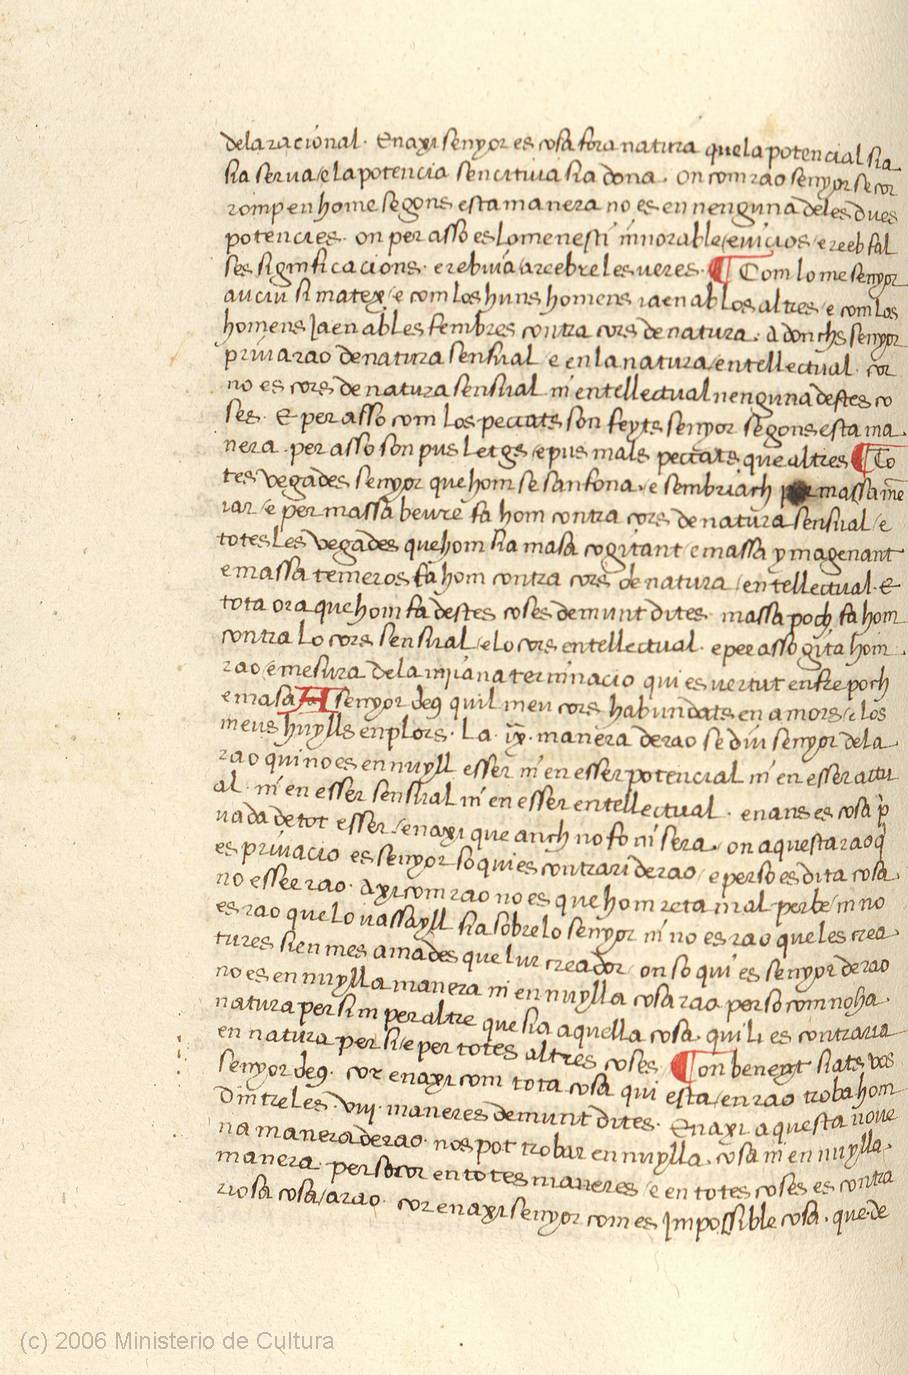 dela racional · Enaxi senyor es cosa fora natura que la potencial sia
sia serua / e la potencia sencitiua sia dona . on com rao senyor se cor
romp en home segons esta manera no es en nenguna de les dues
potencies · on per asso es lome nesti innorable / e uicios / e reeb fal
ses significacions · e rebuia a reebre les ueres · ¶ Com lome senyor
auciu si matex / e com los huns homens iaen ab los altres / e com los
homens Iaen ab les fembres contra cors de natura . a donchs senyor
priua rao de natura sensual e en la natura / entellectual · cor
no es cors de natura sensual ni entellectual nenguna destes co
ses · E per asso com los peccats son feyts senyor segons esta ma .
nera · per asso son pus letgs / e pus mals peccats que altres ¶ To
tes vegades senyor que hom se sanfona · e sembriach per massa me
iar / e per massa beure fa hom contra cors de natura sensual / e
totes les vegades que hom sia masa cogitant / e massa ymagenant
e massa temeros fa hom contra cors de natura / entellectual · E
tota ora que hom fa destes coses demunt dites · massa poch fa hom
contra lo cors sensual / e lo cors entellectual · e per asso gita hom .
rao / e mesura de la mijana terminacio qui es vertut entre poch
e masa A senyor deus quil meu cors habundats en amors / e los
meus huylls en plors · La · ix · manera de rao se diu senyor de la .
rao qui no es en nuyll esser ni en esser potencial ni en esser actu
al · ni en esser sensual ni en esser entellectual · enans es cosa p
uada de tot esser / enaxi que anch no fo ni sera . on aquesta rao q
es priuacio es senyor so qui es contrari de rao / e perso es dita cosa .
no esser rao · Axi com rao no es que hom reta mal per be / ni no
es rao que lo uassayll sia sobre lo senyor ni no es rao que les crea .
tures sien mes amades que lur creador / on so qui es senyor de rao
no es en nuylla manera ni en nuylla cosa rao per so com no ha .
natura per si ni per altre que sia aquella cosa . qui li es contraria
en natura per si / e per totes altres coses ¶ on beneyt siats vos
senyor deus · cor enaxi com tota cosa qui esta / en rao troba hom
Dintre les · viii · maneres demunt dites · Enaxi aquesta noue
na manera de rao · nos pot trobar en nuylla . cosa ni en nuylla .
manera · per so cor en totes maneres / e en totes coses es contra
riosa cosa / a rao · cor enaxi senyor com es Impossible cosa . que de
(c) 2006 Ministerio de Cultura